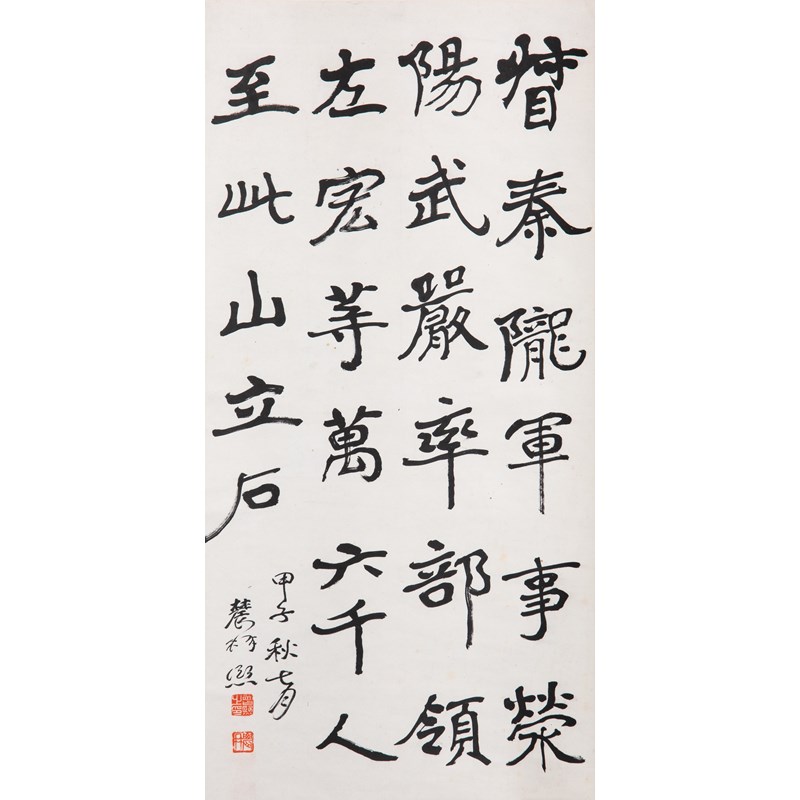 督秦隴軍事滎
陽武嚴率部領
左宏等萬六千人
至此山立石
甲子秋七月
農髯熙